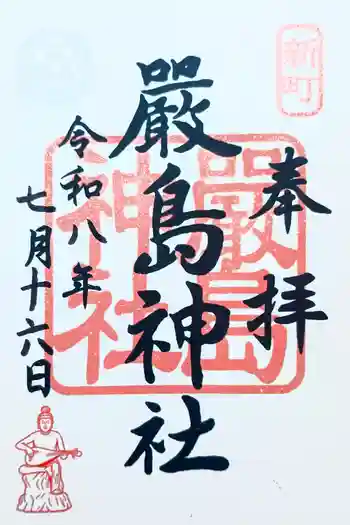 新町
奉拝
嚴島神社
嚴島神社
令和八年
七月十六日